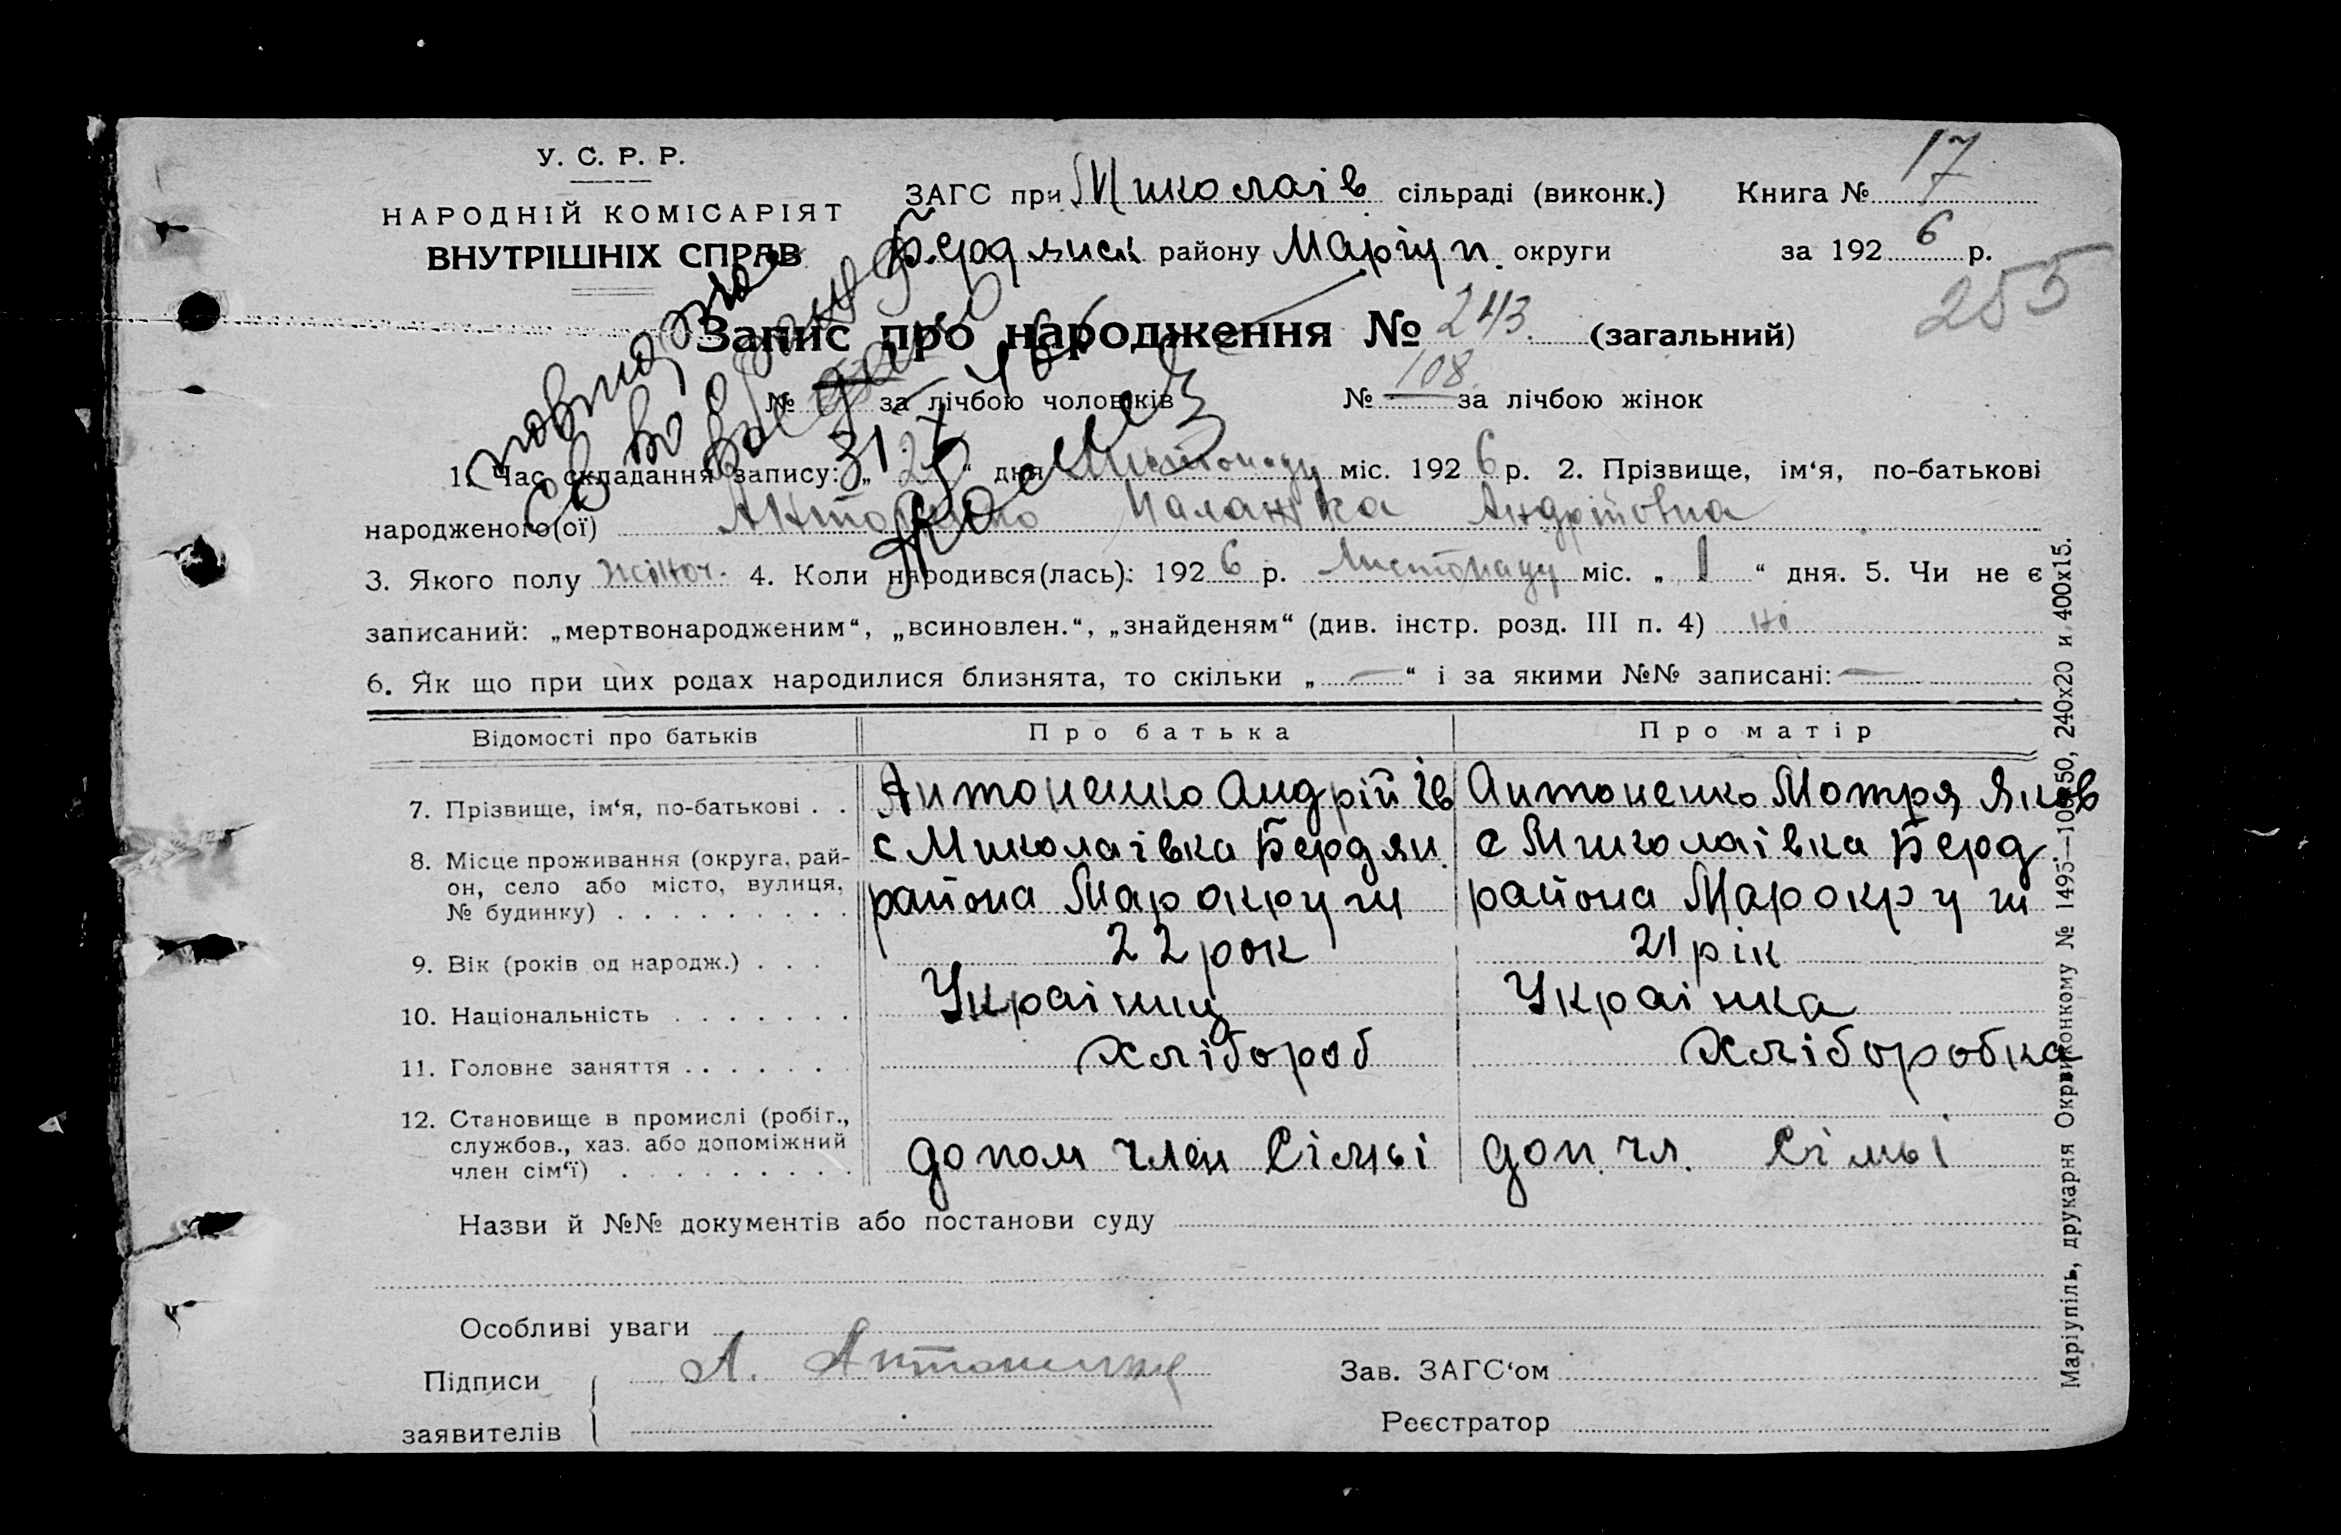 У. С. Р. Р.
НАРОДНІЙ КОМІСАРІЯТ
ВНУТРІШНІХ СПРАВ
ЗАГС при Миколаів сільраді (виконк.) Книга № 17
Бердянск району Маріуп. округи за 1926 р.
255
Запис про народження № 243 (загальний)
№ за лічбою чоловіків № 108 за лічбою жінок
повидоэна
31
1. Час складання запису: „ “ дня Листопаду міс. 1926 р. 2. Прізвище, ім‘я, по-батькові
народженого(ої) Антоненко Палажка Андрійовна
3. Якого полу жіноч. 4. Коли народився(лась): 1926 р. Листопаду міс. „ 1 “ дня. 5. Чи не є
записаний: „мертвонародженим“, „всиновлен.“, „знайденям“ (див. інстр. розд. III п. 4) ні
6. Як що при цих родах народилися близнята, то скільки „ — “ і за якими №№ записані: —
Відомості про батьків Про батька Про матір
7. Прізвище, ім‘я, по-батькові . . Антоненко Андрій Ів Антоненко Мотря Яков
8. Місце проживання (округа, рай-
он, село або місто, вулиця,
№ будинку) . . . . . . . . .
с Миколаівка Бердян. с Миколаівка Берд.
района Марокруги района Марокруги
9. Вік (років од народж.) . . . 22 рок 21 рік
10. Національність . . . . . . . Украінец Украінка
11. Головне заняття . . . . . . . Хлібороб Хліборобка
12. Становище в промислі (робіт.,
службов., хаз. або допоміжний
член сім‘ї) . . . . . . . . .
допом член Сімьі доп. чл. Сімьі
Назви й №№ документів або постанови суду
Особливі уваги
Підписи А. Антоненко Зав. ЗАГС‘ом
заявителів Реєстратор
Маріупіль, друкарня Окрвиконкому № 1495—10050, 240х20 и 400х15.